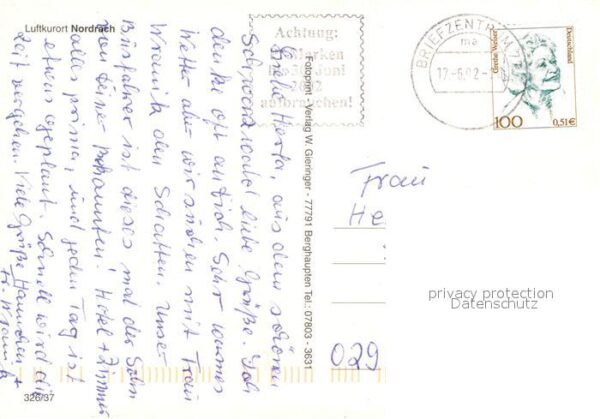 Luftkurort Nordrach
Achtung:
Marken
bis 30. Juni
aufbrauchen!
BRIEFZENTRUM
ma
17.-6.02.-
Grethe Weiser
Deutschland
100
0,51€
Fotoprint - Verlag W. Gieringer - 77791 Berghaupten Tel.: 07803 - 3631
Liebe Herta, aus dem schönen
Schwarzwald liebe Grüße. Ich
denke oft an Dich. Sehr warmes
Wetter aber wir suchen mit Frau
den Schatten. Unser
Busfahrer ist dieses mal der Sohn
von Deiner Bekannten! Hotel + Zimmer
alles prima, und jeden Tag ist
etwas geplant. Schnell wird die
Zeit vergehen. Viele Grüße Hannchen +
Fr.
326/37
Frau
He
029
privacy protection
Datenschutz